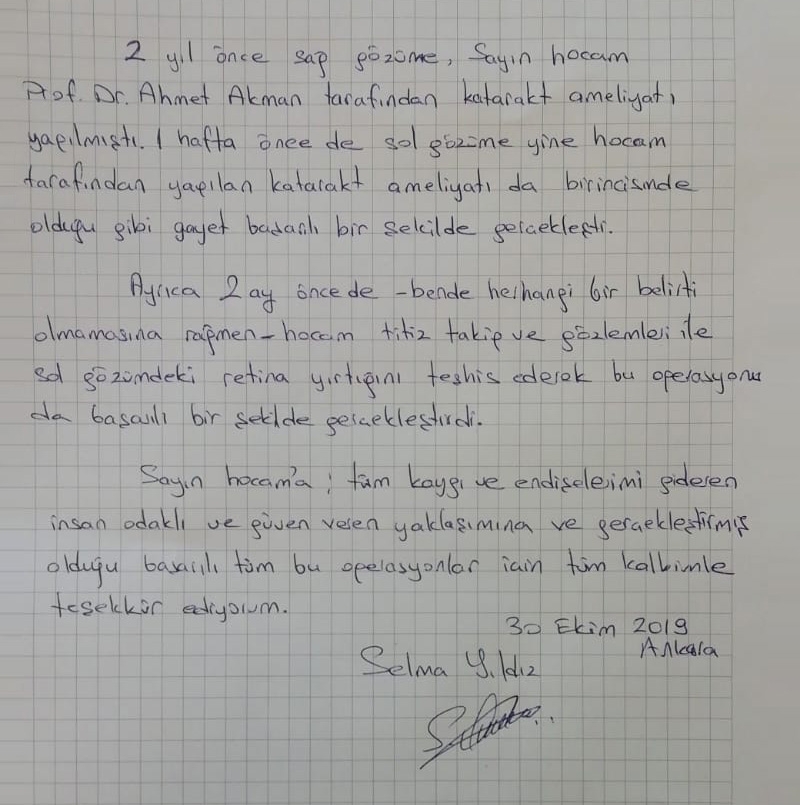 2 yıl önce sağ gözüme, Sayın hocam
Prof. Dr. Ahmet Akman tarafından katarakt ameliyatı
yapılmıştı. 1 hafta önce de sol gözüme yine hocam
tarafından yapılan katarakt ameliyatı da birincisinde
olduğu gibi gayet başarılı bir şekilde gerçekleşti.
Ayrıca 2 ay önce de -bende herhangi bir belirti
olmamasına rağmen- hocam titiz takip ve gözlemleri ile
sol gözümdeki retina yırtığını teşhis ederek bu operasyonu
da başarılı bir şekilde gerçekleştirdi.
Sayın hocam'a ; tüm kaygı ve endişelerimi gideren
insan odaklı ve güven veren yaklaşımına ve gerçekleştirmiş
olduğu başarılı tüm bu operasyonlar için tüm kalbimle
teşekkür ediyorum.
30 Ekim 2019
Ankara
Selma Yıldız